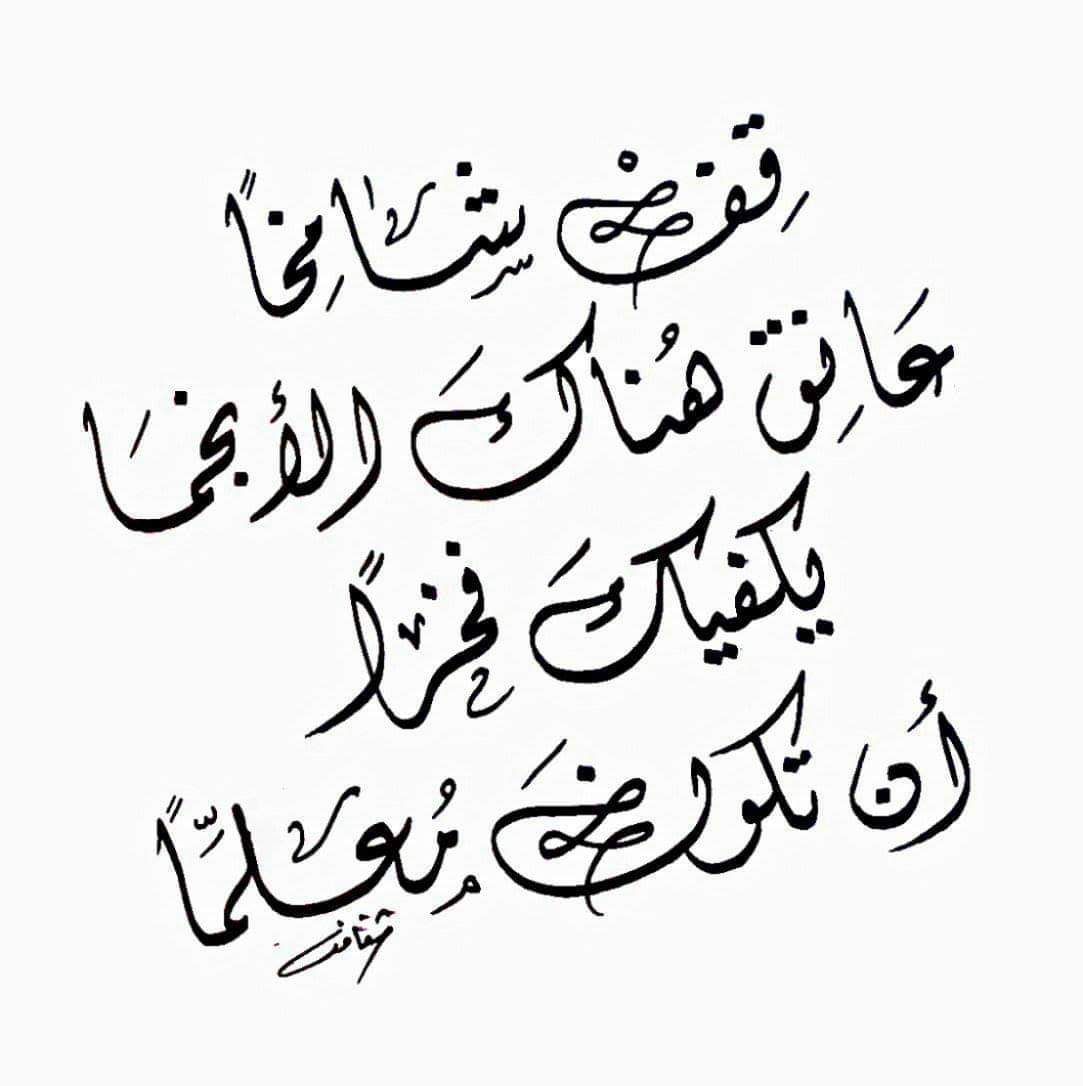 قِفْ شامِخاً
عَانِق هُناكَ الأنجمَا
يكفيكَ فخراً
أن تكونَ مُعلِّماً